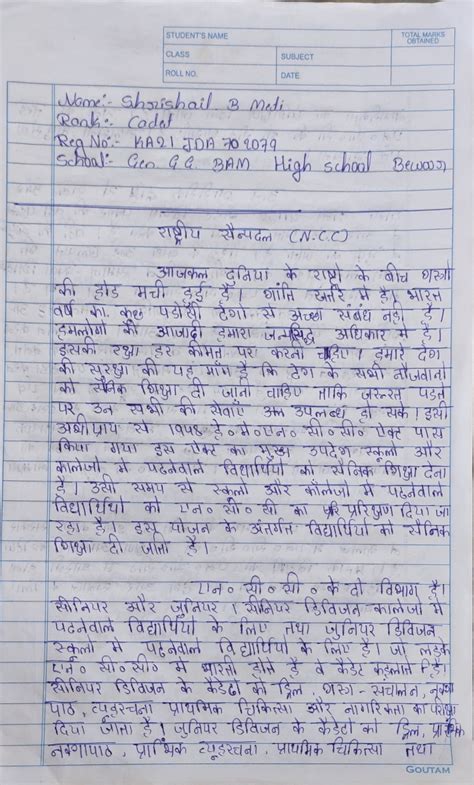 STUDENT'S NAME
TOTAL MARKS OBTAINED
CLASS
SUBJECT
ROLL NO.
DATE
Name:- Shrishail. B Meti
Rank:- Cadet
Reg No:- KA21 JDA 702079
School:- Gov G.G. BAM High school Bewoor
राष्ट्रीय सैन्यदल (N.C.C)
आजकल दुनिया के राष्ट्रो के बीच शस्त्रो
की होड मची हुई है। शांति खतरे में है। भारत
वर्ष का कुछ पडोसी देशो से अच्छा संबंध नही है।
हमलोगों की आजादी हमारा जन्मसिद्ध अधिकार में है।
इसकी रक्षा हर कीमत पर करना चाहिए। हमारे देश
की सुरक्षा की यह मांग है कि देश के सभी नौजवानो
को सैनिक शिक्षा दी जाना चाहिए ताकि जरूरत पडने
पर उन सभी की सेवाए उपलब्ध हो सके। इसी
अभीप्राय से १९४८ ई० मे० एन० सी० सी० ऐक्ट पास
किया गया इस ऐक्ट का मुख्य उपदेश स्कूलो और
कालेजो में पढनेवाले विद्यार्थियो को सैनिक शिक्षा देना
है। उसी समय से स्कूलो और कॉलेजो में पढनेवाले
विद्यार्थियो को एन० सी० सी० का प्रशिक्षण दिया जा
रहा है। इस योजन के अंतर्गत विद्यार्थियो को सैनिक
शिक्षा दी जाता है।
एन० सी० सी० के दो विभाग है।
सीनियर और जुनियर। सीनियर डिविजन कालेजो में
पढनेवाले विद्यार्थियो के लिए तथा जुनियर डिविजन
स्कूलो में पढनेवाले विद्यार्थियो के लिए है। जो लडके
एन० सी० सी० में भारती होते है वे कैडेट कहलाते है।
सीनियर डिविजन के कैडेटो को ड्रिल शस्त्र-संचालन, नक्शा
पाठ, व्यूहरचना प्राथमिक चिकित्सा और नागरिकता का
दिया जाता है। जुनियर डिविजन के कैडेटो को ड्रिल,
नक्शापाठ, प्रार्भिक व्यूहरचना, प्राथमिक चिकित्सा तथा
GOUTAM